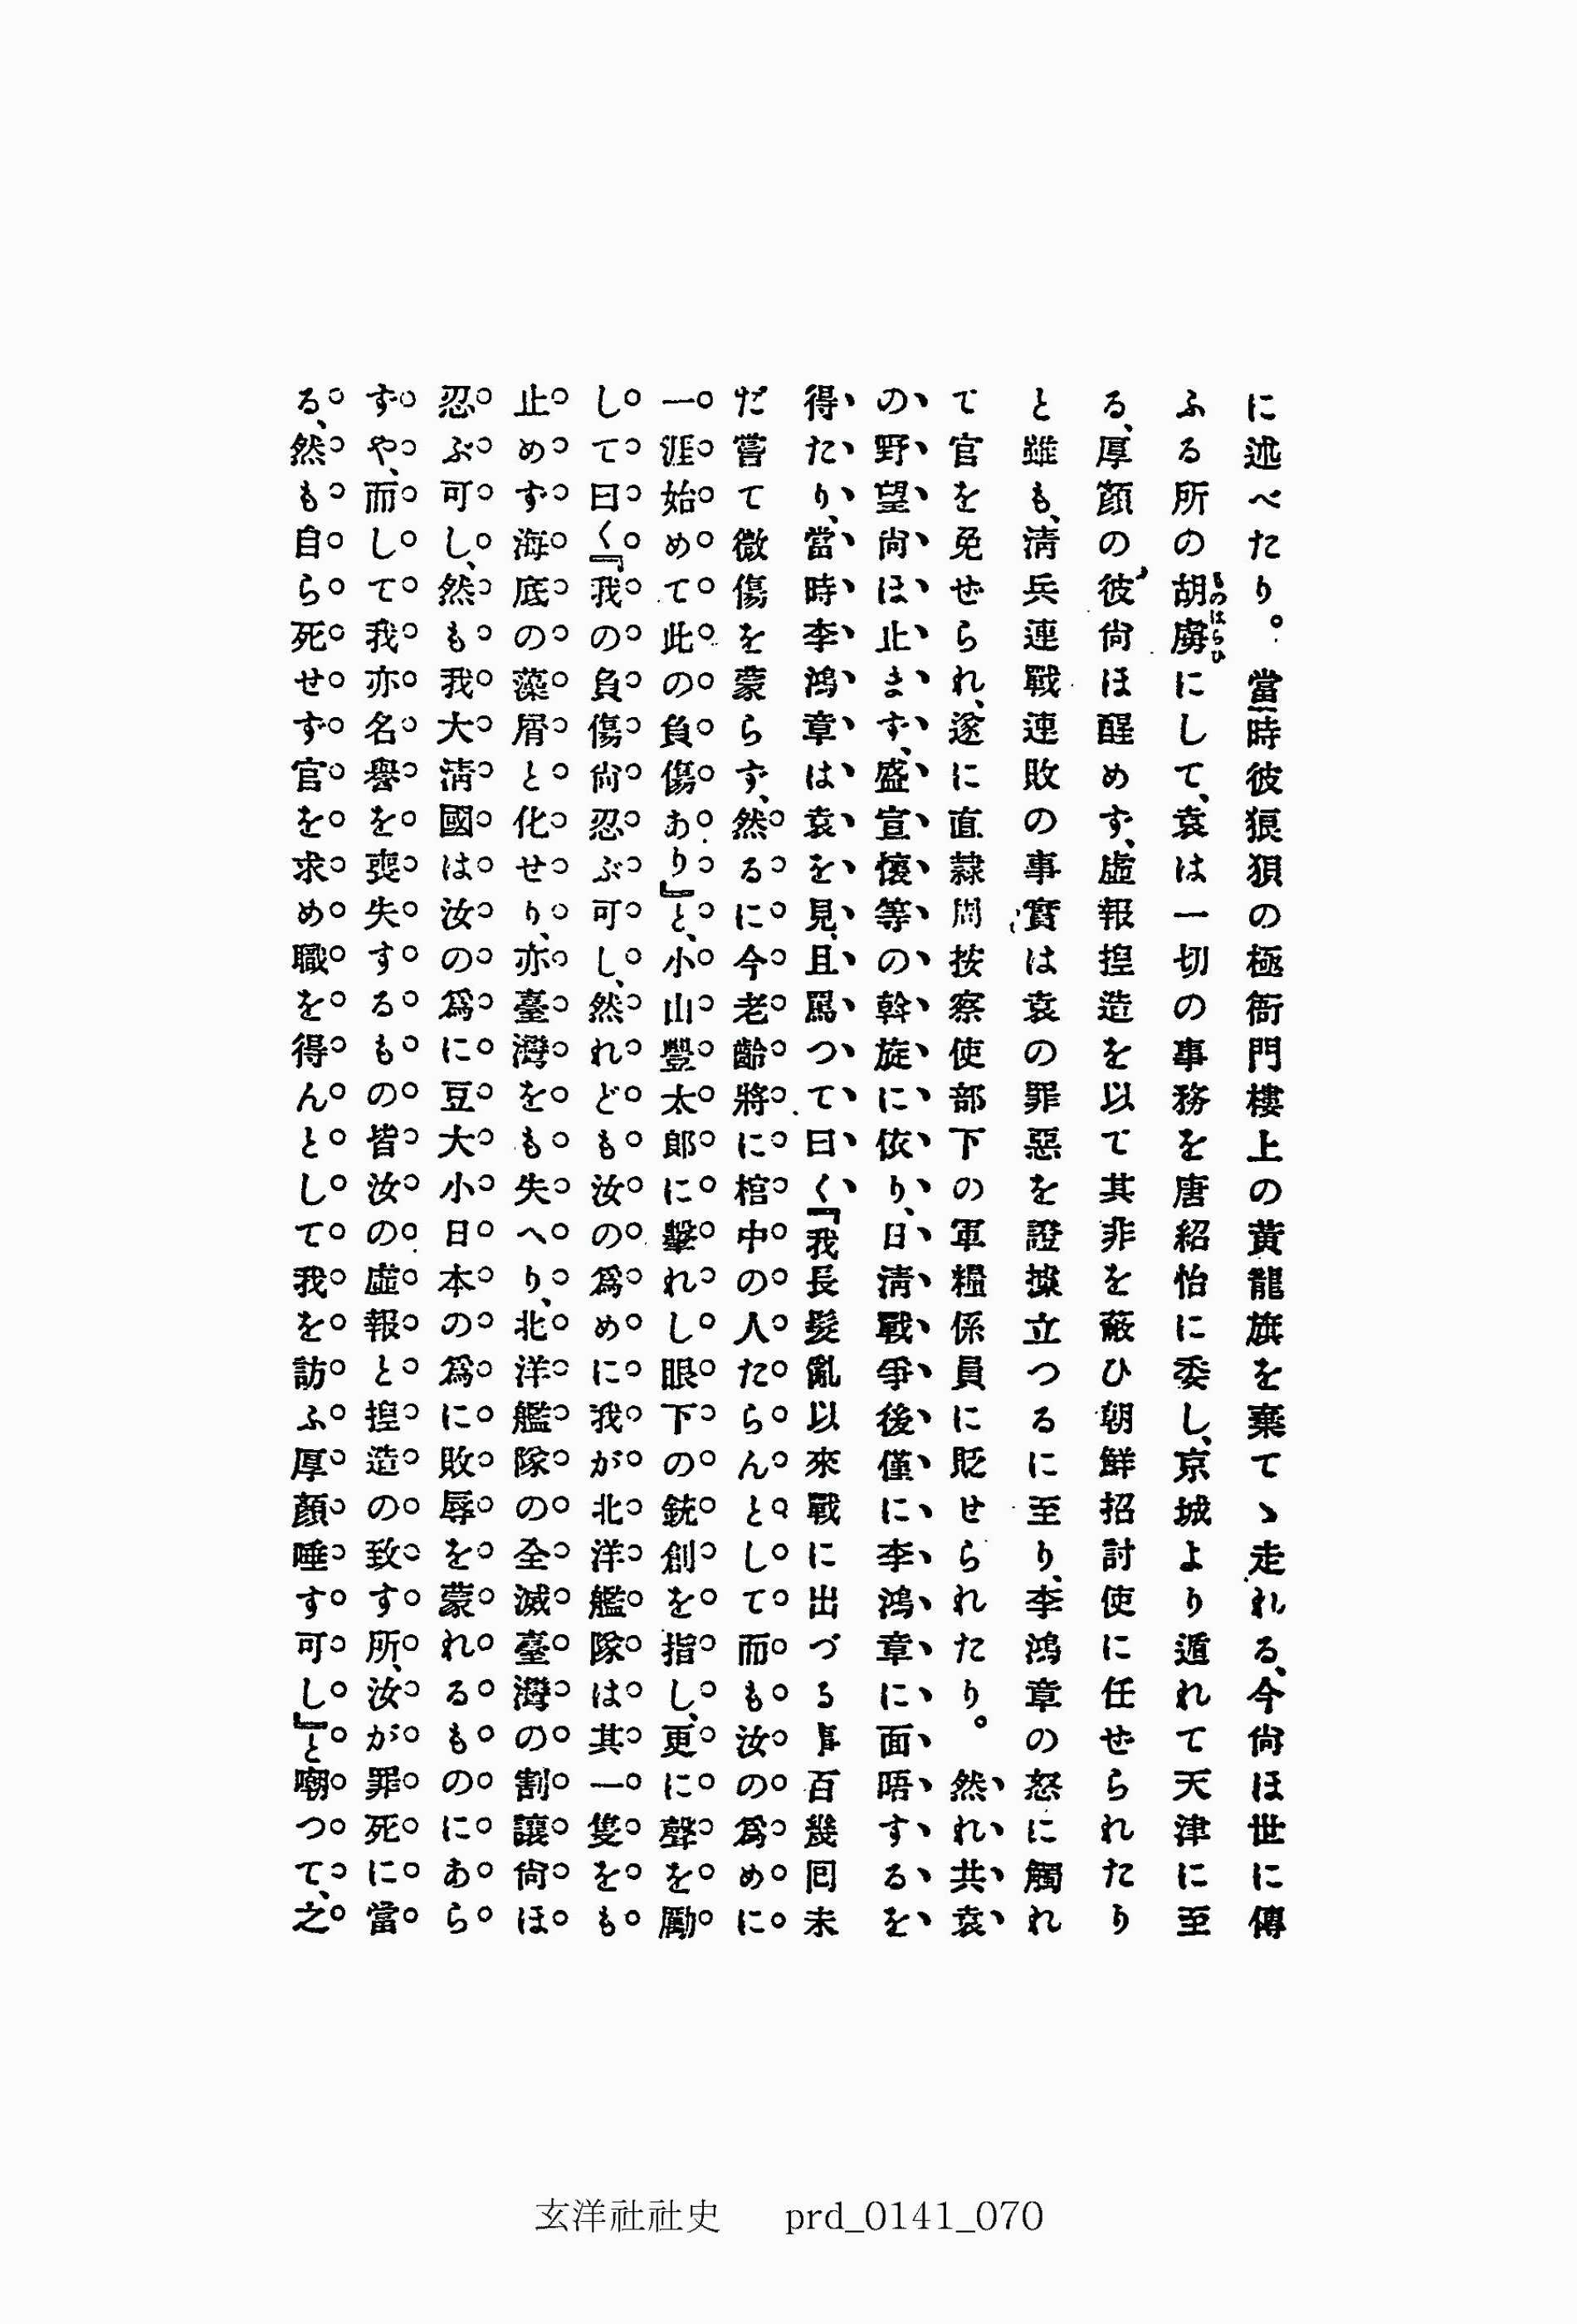 に述べたり。當時彼狼狽の極衙門樓上の黃龍旗を棄てゝ走れる、今尙ほ世に傳
ふる所の胡虜にして、袁は一切の事務を唐紹怡に委し、京城より遁れて天津に至
る、厚顏の彼尙ほ醒めず、虛報揑造を以て其非を蔽ひ朝鮮招討使に任せられたり
と雖も、淸兵連戰連敗の事實は袁の罪惡を證據立つるに至り、李鴻章の怒に觸れ
て官を免せられ、遂に直隷周按察使部下の軍糧係員に貶せられたり。然れ共袁
の野望尙ほ止まず、盛宣懷等の斡旋に依り、日淸戰爭後僅に李鴻章に面晤するを
得たり、當時李鴻章は袁を見、且罵つて曰く『我長髮亂以來戰に出づる事百幾回未
だ嘗て微傷を蒙らず、然るに今老齡將に棺中の人たらんとして而も汝の爲めに
一涯始めて此の負傷あり』と、小山豐太郎に擊れし眼下の銃創を指し、更に聲を勵
して曰く『我の負傷尙忍ぶ可し、然れども汝の爲めに我が北洋艦隊は其一隻をも
止めず海底の藻屑と化せり、亦臺灣をも失へり、北洋艦隊の全滅臺灣の割讓尙ほ
忍ぶ可し、然も我大淸國は汝の爲に豆大小日本の爲に敗辱を蒙れるものにあら
ずや、而して我亦名譽を喪失するもの皆汝の虛報と揑造の致す所、汝が罪死に當
る、然も自ら死せず官を求め職を得んとして我を訪ふ厚顏唾す可し』と嘲つて、之
ものはらひ
玄洋社社史 prd_0141_070